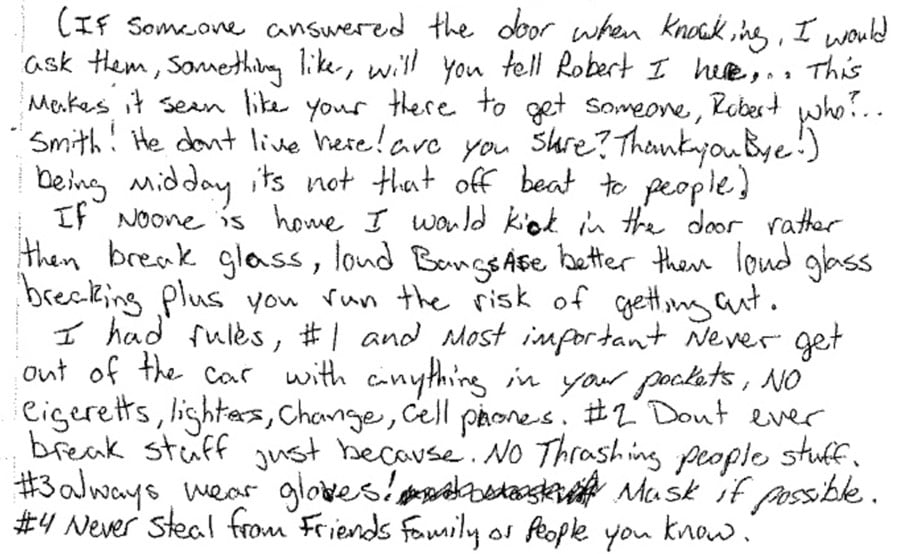 (If Someone answered the door when knocking, I would
ask them, something like, will you tell Robert I here,.. This
Makes it seem like your there to get someone, Robert who?...
Smith! He dont live here! are you sure? Thankyou Bye!)
being midday its not that off beat to people)
If Noone is home I would kick in the door ratter
then break glass, loud Bangs Are better then loud glass
breaking plus you run the risk of getting cut.
I had rules, #1 and Most important Never get
out of the car with anything in your pockets, NO
cigeretts, lighters, change, cell phones. #2 Dont ever
break stuff just because. NO Thrashing people stuff.
#3 always wear gloves! Mask if possible.
#4 Never Steal from Friends Family or People you know.